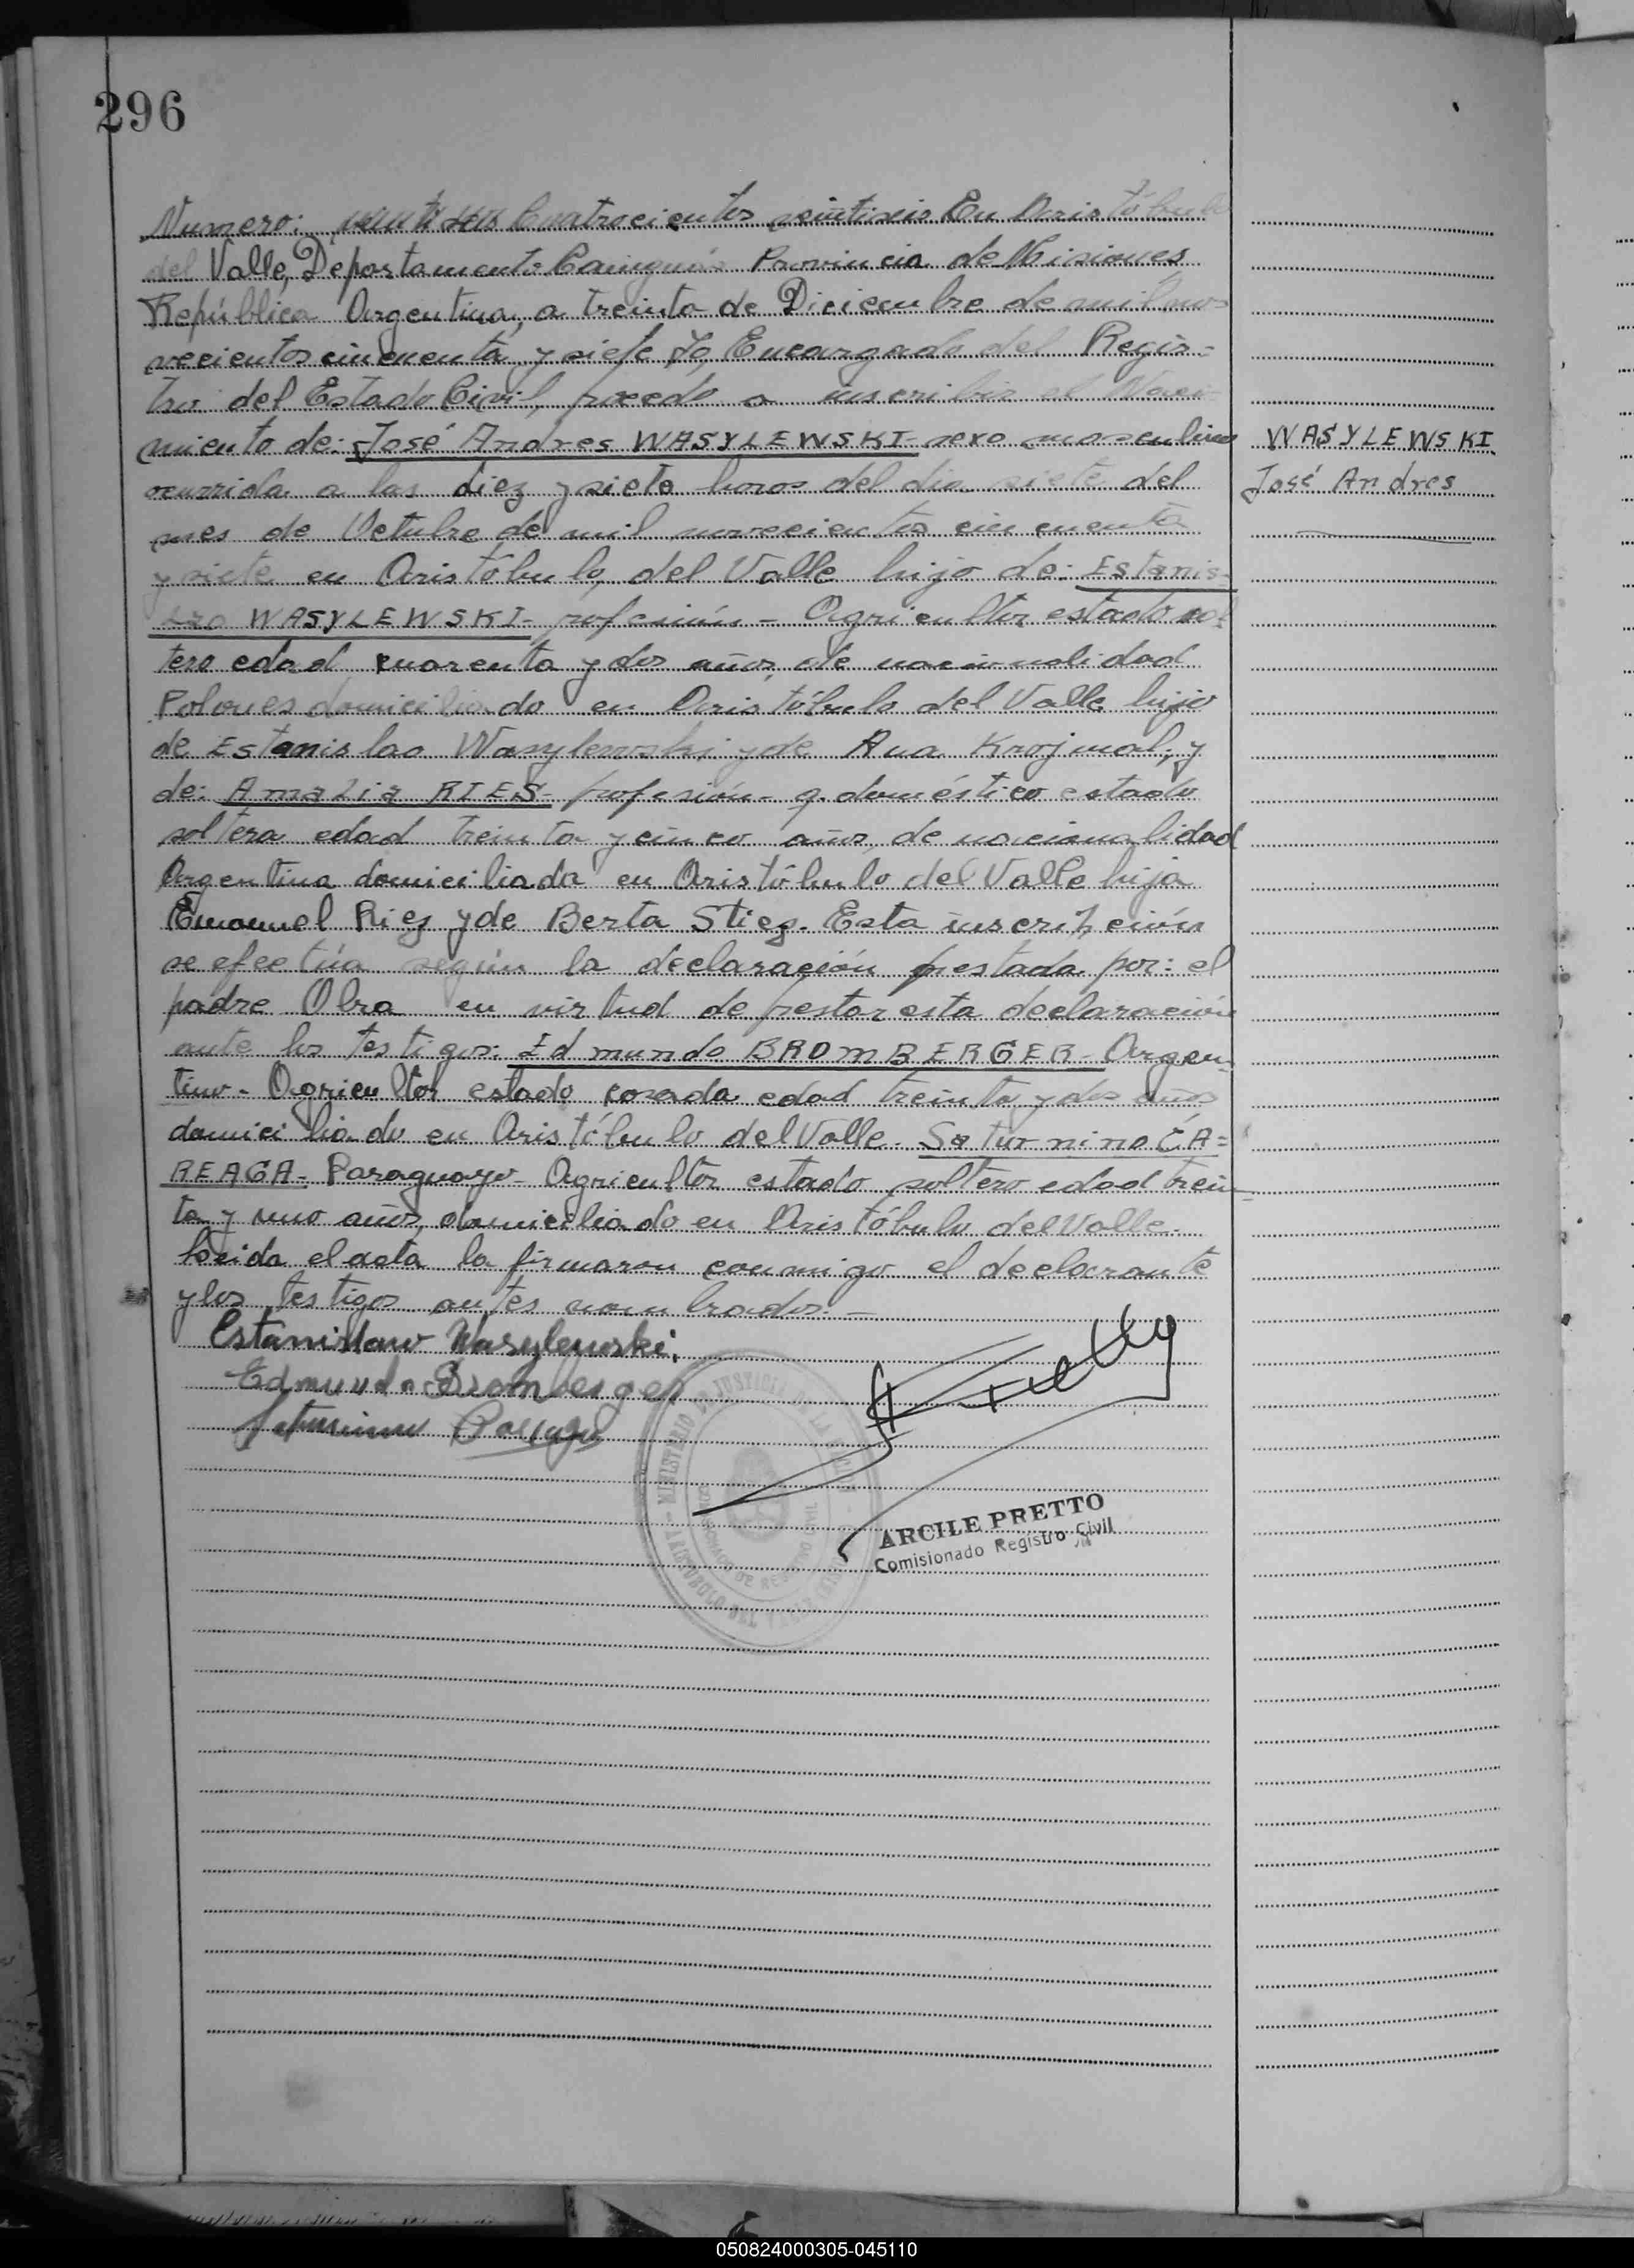 296
Numero: Cuatrocientos veintiseis En Aristóbulo
del Valle, Departamento Cainguás Provincia de Misiones
República Argentina, a treinta de Diciembre de mil no-
vecientos cincuenta y siete Yo, Encargado del Regis=
tro del Estado Civil, procedo a inscribir el Naci
miento de: José Andres WASYLEWSKI - sexo masculino
WASYLEWSKI
José Andres
ocurrida a las diez y siete horas del dia siete del
mes de Octubre de mil novecientos cincuenta
y siete en Aristóbulo, del Valle hijo de: Estanis=
lao WASYLEWSKI - profesión - Agricultor estado sol
tero edad cuarenta y dos años, de nacionalidad
Polones domiciliado en Aristóbulo del Valle hijo
de Estanislao Wasylewski y de Ana y
de: Amalia RIES - profesión - q. doméstico estado
soltera edad treinta y cinco años, de nacionalidad
Argentina domiciliada en Aristóbulo del Valle hija
Emanuel Ries y de Berta Stieg. Esta inscripción
se efectúa según la declaración prestada por: el
padre Obra en virtud de prestar esta declaración
ante los testigos: Edmundo BROMBERGER - Argen=
tino - Agricultor estado casada edad treinta y dos años
domiciliado en Aristóbulo del Valle. Saturnino CA=
REAGA - Paraguayo - Agricultor estado soltero edad trein=
ta y uno años, domiciliado en Aristóbulo del Valle.
Leida el acta la firmaron conmigo el declarante
y los testigos antes nombrados. -
Estanislaw Wasylewski.
Edmundo Bromberger
Saturnino
MINISTERIO DE JUSTICIA DE LA
ARISTOBULO DEL
ARCILE PRETTO
Comisionado Registro Civil
050824000305-045110